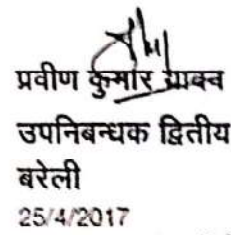 प्रवीण कुमार
उपनिबन्धक द्वितीय
बरेली
25/4/2017